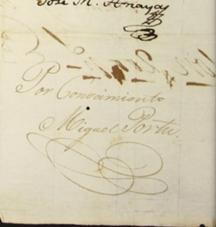 José M. Amayas
Por Conocimiento
Miguel Portu.